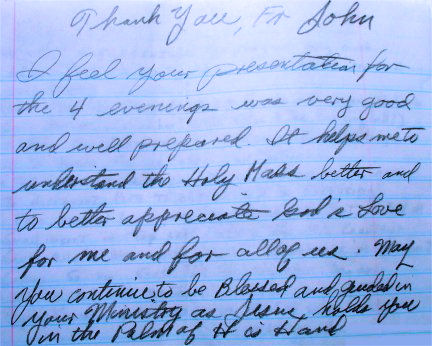 Thank You, Fr John
I feel your presentation for
the 4 evenings was very good
and well prepared. It helps me to
understand the Holy Mass better and
to better appreciate God's Love
for me and for all of us. May
you continue to be Blessed and guided in
your Ministry as Jesus holds you
in the Palm of His Hand